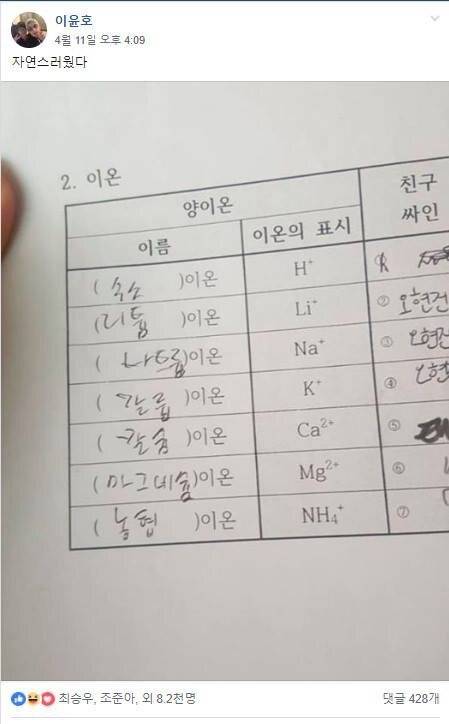 이윤호
4월 11일 오후 4:09
자연스러웠다
2. 이온
양이온 친구 싸인
이름 이온의 표시
( 수소 )이온 H⁺
(리튬 )이온 Li⁺ ② 오현건
( 나트륨)이온 Na⁺ ③ 오현건
( 칼륨 )이온 K⁺ ④ 오현
( 칼슘 )이온 Ca²⁺ ⑤
(마그네슘)이온 Mg²⁺ ⑥
( 농협 )이온 NH₄⁺ ⑦
최승우, 조준아, 외 8.2천명 댓글 428개